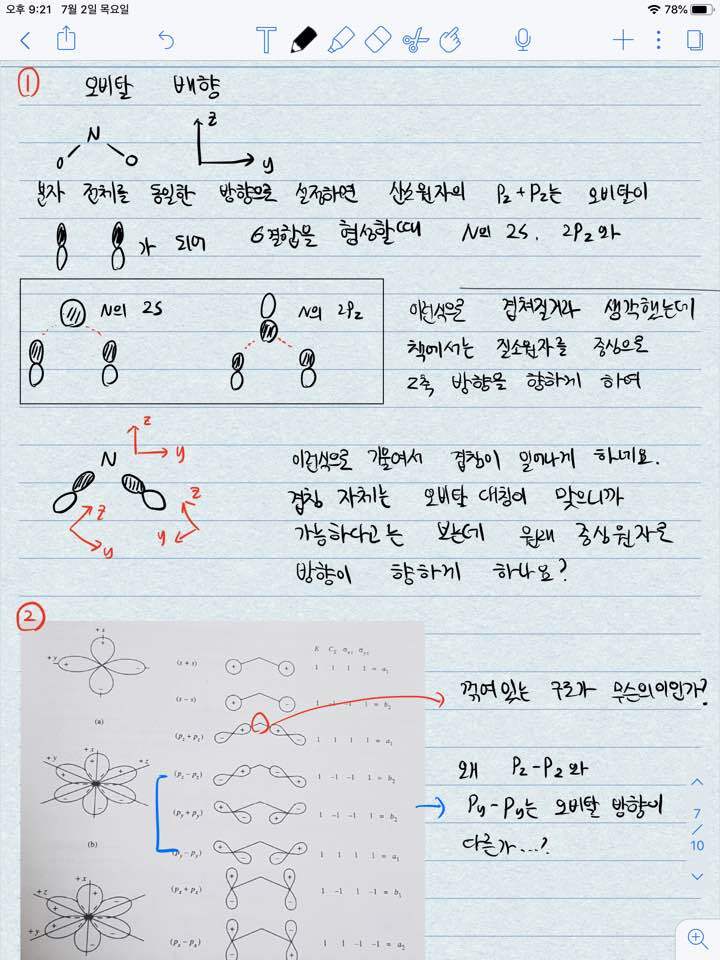 오후 9:21 7월 2일 목요일
78%
① 오비탈 배향
N
O O
z
y
분자 전체를 동일한 방향으로 설정하면 산소원자의 Pz+Pz는 오비탈이
가 되어 σ결합을 형성할때 N의 2S, 2Pz와
N의 2S
N의 2Pz
이런식으로 겹쳐질거라 생각했는데
책에서는 질소원자를 중심으로
z축 방향을 향하게 하여
N
z
y
z
y
z
y
이런식으로 기울여서 겹침이 일어나게 하네요.
겹침 자체는 오비탈 대칭이 맞으니까
가능하다고는 보는데 원래 중심원자로
방향이 향하게 하나요?
②
E C₂ σxz σyz
(s + s) 1 1 1 1 = a₁
(s − s) 1 −1 −1 1 = b₂
(pz + pz) 1 1 1 1 = a₁
(pz − pz) 1 −1 −1 1 = b₂
(py + py) 1 −1 −1 1 = b₂
(py − py) 1 1 1 1 = a₁
(px + px) 1 −1 1 −1 = b₁
(px − px) 1 1 −1 −1 = a₂
+x
+y
(a)
+x
+y
+z
(b)
+x
+z
+y
꺾여있는 구조가 무슨의미인가?
왜 Pz-Pz와
Py-Py는 오비탈 방향이
다른가...?
7
/
10